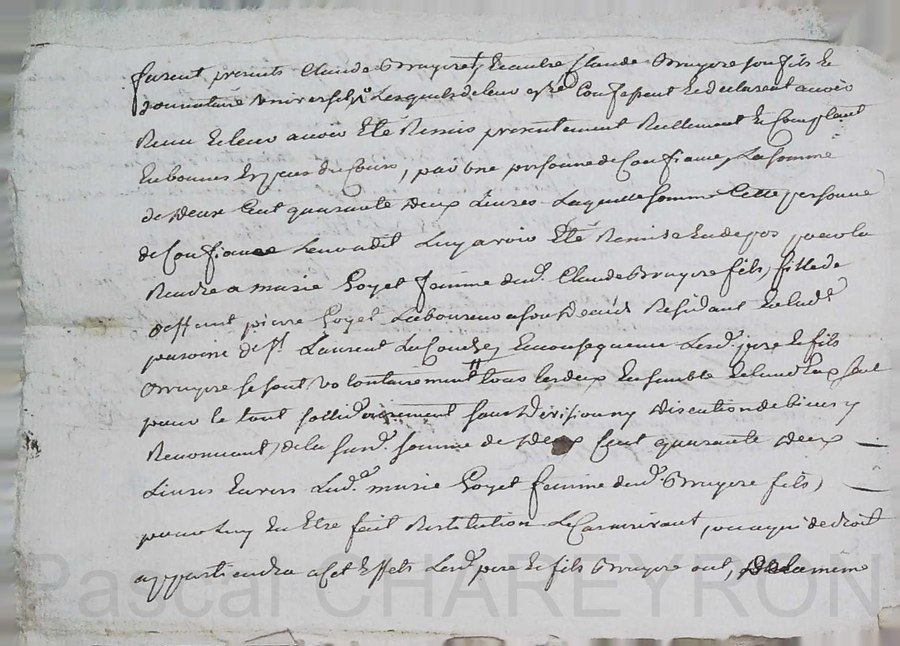 furent presents Claude Bruyere et autre Claude Bruyere son fils et
donnataire universel, Lesquels de leur gré Confessent et declarent avoir
Receu et leur avoir Eté Remis presentement Reellement et Comptant
En bonnes Especes du Cours, par une personne de Confiance, La Somme
de Deux Cent quarante Deux Livres Laquelle Somme Cette personne
de Confiance a dit Luy avoir Eté Remise En depos pour la
Rendre a marie Goyet femme dud. Claude Bruyere fils, fille de
deffunt pierre Goyet Laboureur Residant En lad.
paroisse de St. Laurent La Conche, En consequence Lesd. pere et fils
Bruyere se sont volontairement tous les deux Ensemble et l'un d'eux seul
pour le tout sollidairement sans Division ny Discution de biens y
Renonnant, de la susd. somme de Deux Cent quarante Deux
Livres Envers Lad. marie Goyet femme dud. Bruyere fils,
pour Luy En Etre fait Restitution Le Cas arrivant, ou a qui de droit
appartiendra a Cet Effets Lesd. pere et fils Bruyere ont, De la même
Pascal CHAREYRON